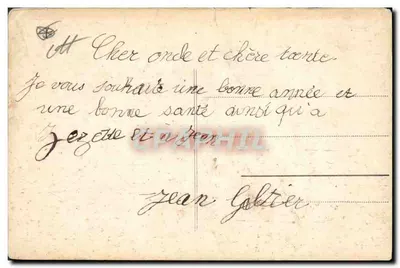 Cher oncle et chère tante
Je vous souhaite une bonne année et
une bonne santé ainsi qu'a
et à Jean
Jean